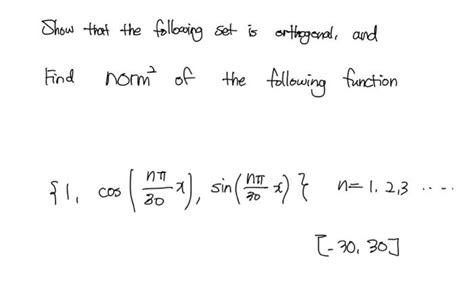 Show that the following set is orthogonal, and
Find norm² of the following function
{1, cos(nπ/30 x), sin(nπ/30 x)} n=1, 2, 3 ....
[-30, 30]